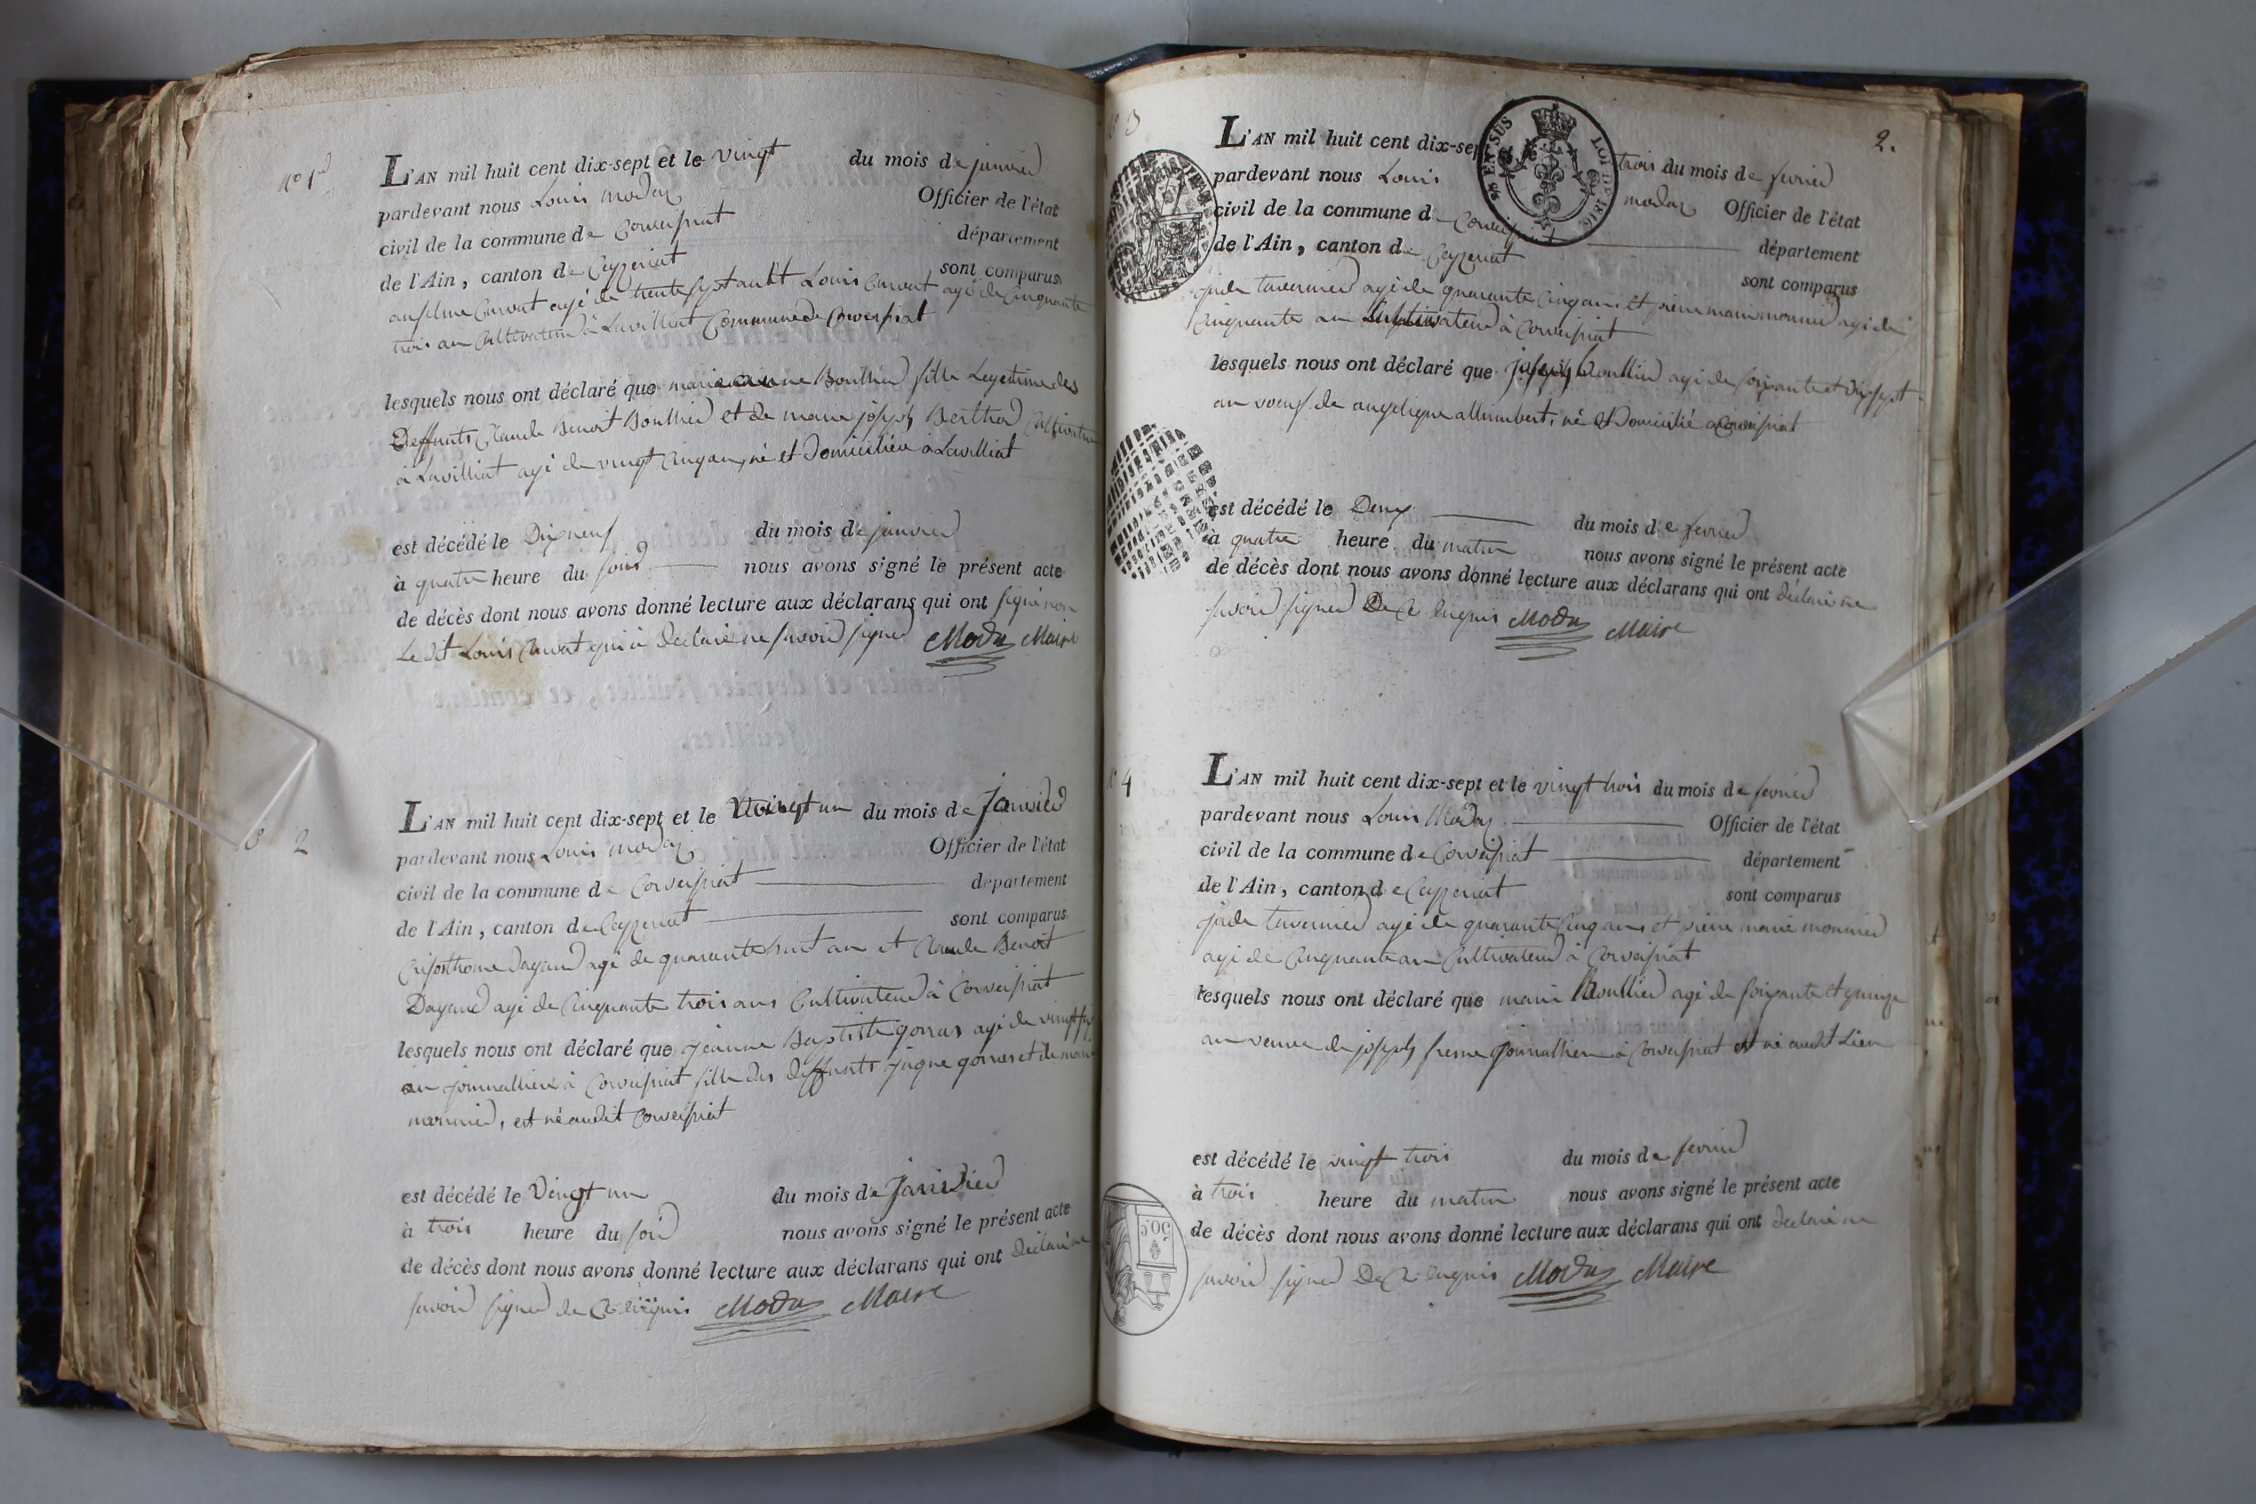 no 1er
L'AN mil huit cent dix-sept et le vingt du mois de janvier
pardevant nous Louis moday Officier de l'état
civil de la commune de Corveissiat département
de l'Ain, canton de Ceyzeriat sont comparus
anselme Curvat agé de trente sept an et Louis Curvat agé de Cinquante
trois an Cultivateur à Lavilliat Commune de Corveissiat
lesquels nous ont déclaré que marie anne Boullier fille Legetime des
Deffunts Claude Benoit Boullier et de marie joseph Berthod Cultivatrice
à Lavilliat agé de vingt Cinq an, né et Domiciliée à Lavilliat
est décédé le Dix neuf du mois de janvier
à quatre heure du soir nous avons signé le présent acte
de décès dont nous avons donné lecture aux déclarans qui ont signé non
Le dit Louis Curvat qui à declaré ne savoir signer Moday Maire
2
L'AN mil huit cent dix-sept et le vingt un du mois de Janvier
pardevant nous Louis moday Officier de l'état
civil de la commune de Corveissiat département
de l'Ain, canton de Ceyzeriat sont comparus
Crisosthome Dagand agé de quarante huit an et Claude Benoit
Dagand agé de Cinquante trois ans Cultivateur à Corveissiat
lesquels nous ont déclaré que Jeanne Baptiste gorras agé de vingt
an journalliere à Corveissiat fille des deffunts jaque gorras et de marie
monnier, est né audit Corveissiat
est décédé le Vingt un du mois de Janvier
à trois heure du soir nous avons signé le présent acte
de décès dont nous avons donné lecture aux déclarans qui ont déclaré ne
savoir signer de Ce Enquis Moday Maire
3
2.
EN SUS
LOI DE 1816
L'AN mil huit cent dix-sept trois du mois de fevrier
pardevant nous Louis moday Officier de l'état
civil de la commune de Corveissiat département
de l'Ain, canton de Ceyzeriat sont comparus
jude tavernier agé de quarante Cinq ans et pierre marie monnier agé de
Cinquante an Cultivateur à Corveissiat
lesquels nous ont déclaré que joseph Boullier agé de soixante et dix sept
an voeuf de angelique allumbert, né et Domicilié a Corveissiat
est décédé le Deux du mois de fevrier
à quatre heure du matin nous avons signé le présent acte
de décès dont nous avons donné lecture aux déclarans qui ont déclaré ne
savoir signer De Ce Enquis Moday Maire
n° 4
L'AN mil huit cent dix-sept et le vingt trois du mois de fevrier
pardevant nous Louis Moday Officier de l'état
civil de la commune de Corveissiat département
de l'Ain, canton de Ceyzeriat sont comparus
jude tavernier agé de quarante Cinq ans et pierre marie monnier
agé de Cinquante an Cultivateur à Corveissiat
lesquels nous ont déclaré que marie Boullier agé de soixante et quinze
an veuve de joseph fresne journalliere à Corveissiat et né audit Lieu
est décédé le vingt trois du mois de fevrier
à trois heure du matin nous avons signé le présent acte
de décès dont nous avons donné lecture aux déclarans qui ont declaré ne
savoir signer De Ce Enquis Moday Maire
50C